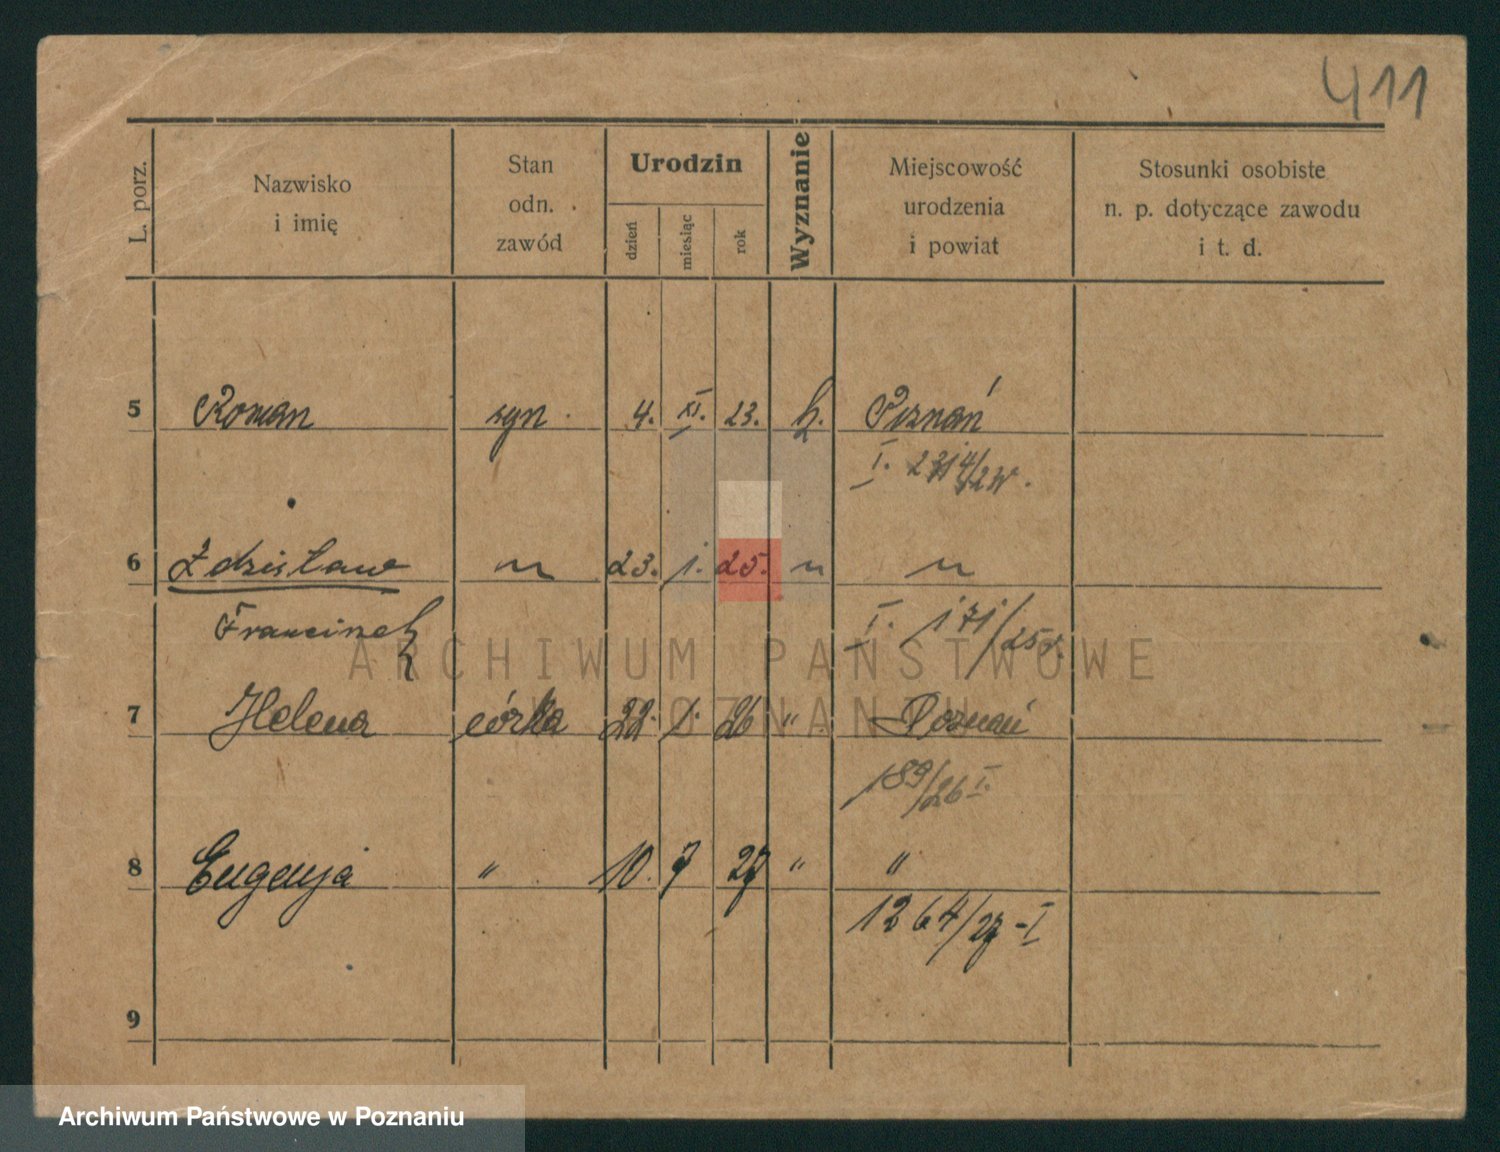 411
L. porz.
Nazwisko
i imię
Stan
odn.
zawód
Urodzin
dzień
miesiąc
rok
Wyznanie
Miejscowość
urodzenia
i powiat
Stosunki osobiste
n. p. dotyczące zawodu
i t. d.
5 Roman syn 4. XI. 23. Poznań
I.
6 Zdzisław 23. 1. 25.
Franciszek I. 171/25
7 Helena córka 22. 1. 26 " Poznań
189/26 I.
8 Eugenja " 10. 7 27 " "
1264/27 - I
9
ARCHIWUM PAŃSTWOWE
W POZNANIU
Archiwum Państwowe w Poznaniu